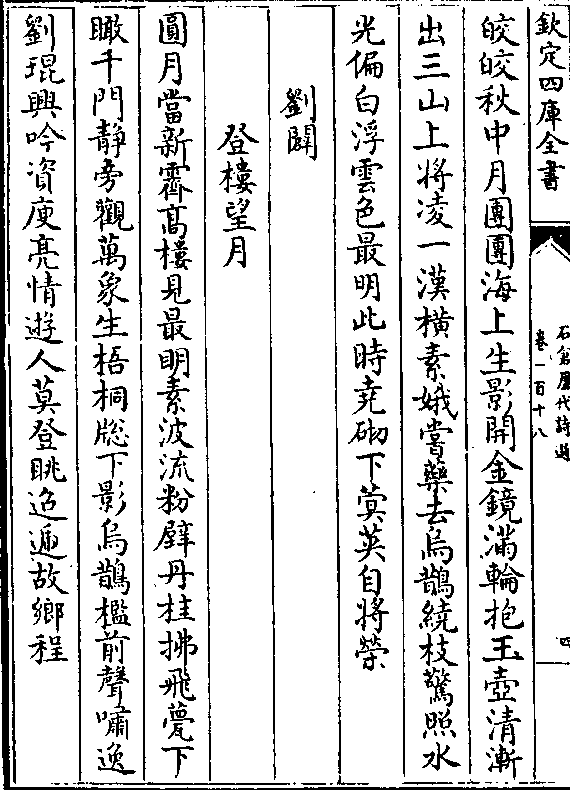 欽定四庫全書
石倉歷代詩選
卷一百十八
四
皎皎秋中月團團海上生影開金鏡滿輪抱玉壺清漸
出三山上將凌一漢橫素娥嘗藥去烏鵲繞枝驚照水
光偏白浮雲色最明此時堯砌下蓂莢自將榮
劉闢
登樓望月
圓月當新霽高樓見最明素波流粉壁丹桂拂飛甍下
瞰千門靜旁觀萬象生梧桐牕下影烏鵲檻前聲嘯逸
劉琨興吟資庾亮情遊人莫登眺迢遞故鄉程